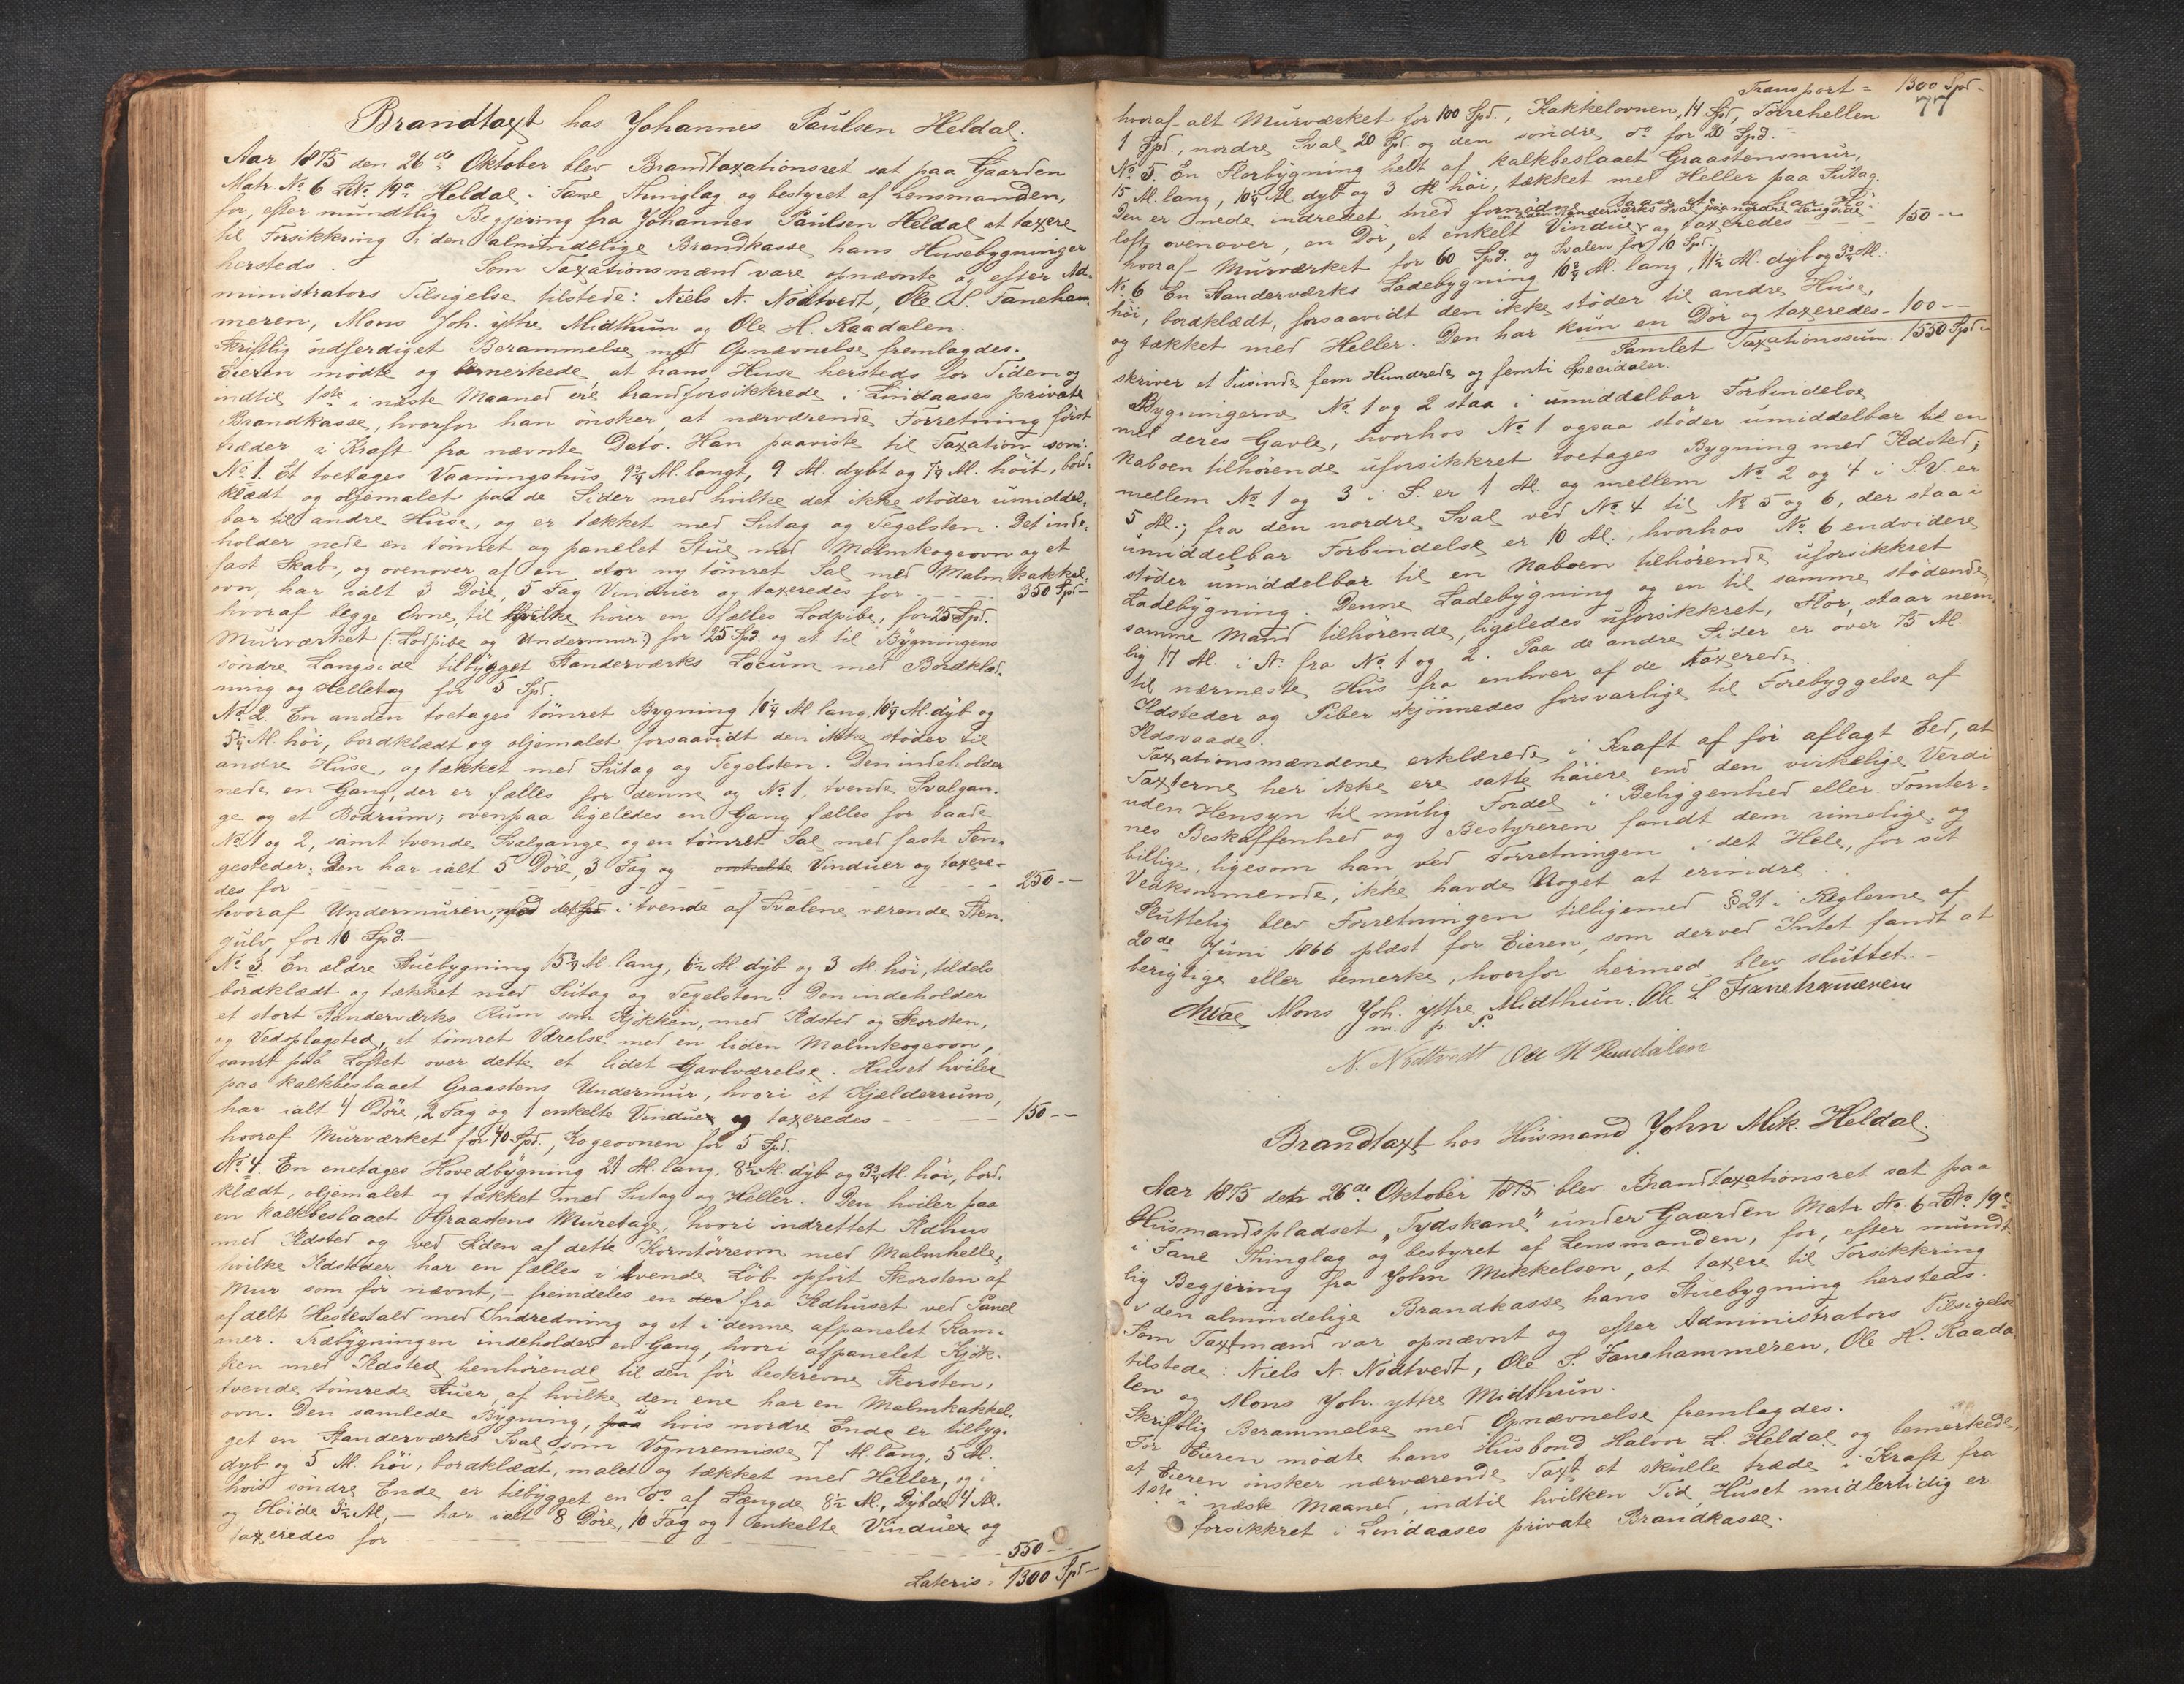 Brandtaxt hos Johannes Paulsen Heldal.
Aar 1875 den 26de Oktober blev Brandtaxationsret sat paa Gaarden
Matr. No 6 LNo 19a Heldal i Fane Thinglag og bestyret af Lensmanden,
for, efter mundtlig Begjering fra Johannes Paulsen Heldal at taxere
til Forsikkring i den almindelige Brandkasse hans Husebygninger
hersteds. Som Taxationsmænd vare opnævnte og efter Ad-
ministrators Tilsigelse tilstede: Niels N. Nödtvedt, Ole S. Faneham-
meren, Mons Joh. ytre Midthun og Ole H. Raadalen.
Skriftlig udferdiget Berammelse med Opnævnelse fremlagdes.
Eieren mödte og bemerkede at hans Huse hersteds for Tiden og
indtil 1ste i næste Maaned ere brandforsikkrede i Lindaases private
Brandkasse, hvorfor han önsker, at nærværende Forretning först
træder i Kraft fra nævnte Dato. Han paaviste til Taxation som:
No 1. Et toetages Vaaningshus 9 3/4 Al. langt, 9 Al. dybt og 7 1/4 Al. höit, bord-
klædt og oljemalet paa de Sider med hvilke det ikke stöder umiddel-
bar til andre Huse, og er tækket med Sutag og Tegelsten. Det inde-
holder nede en tömret og panelet Stue med Malmkogeovn og et
fast Skab, og ovenover af en stor ny tömret Sal med Malmkakkel-
ovn, har ialt 3 Döre, 5 Fag Vinduer og taxeredes for - - - 350 Spd -
hvoraf begge Ovne, til hvilke hörer en fælles Lodpibe, for 25 Spd.
Murværket (: Lodpibe og Undermur :) for 25 Spd. og et til Bygningens
söndre Langside tilbygget Standerværks Locum med Bordklæd-
ning og Helletag for 5 Spd.
No 2. En anden toetages tömret Bygning 10 1/4 Al. lang, 10 1/4 Al. dyb og
5 1/4 Al. höi, bordklædt og oljemalet forsaavidt den ikke stöder til
andre Huse, og tækket med Sutag og Tegelsten. Den indeholder
nede en Gang, der er fælles for denne og No 1, tvende Svalgan-
ge og et Bodrum; ovenpaa ligeledes en Gang fælles for baade
No 1 og 2, samt tvende Svalgange og en tömret Sal med faste Sen-
gesteder. Den har ialt 5 Döre, 3 Fag og enkelte Vinduer og taxere-
des for - - - 250 - -
hvoraf Undermuren med det i tvende af Svalene værende Sten-
gulv for 10 Spd. -
No 3. En ældre Stuebygning 15 3/4 Al. lang, 6 1/2 Al. dyb og 3 Al. höi, tildels
bordklædt og tækket med Sutag og Tegelsten. Den indeholder
et stort Standerværks Rum som Kjökken, med Ildsted og Skorsten,
og Vedoplagsted, et tömret Værelse med en liden Malmkogeovn,
samt paa Loftet over dette et lidet Gavlværelse. Huset hviler
paa kalkbeslaaet Graastens Undermur, hvori et Kjælderrum,
har ialt 4 Döre, 2 Fag og 1 enkelte Vinduer og taxeredes - - - 150 - -
hvoraf Murværket for 40 Spd., Kogeovnen for 5 Spd.
No 4. En enetages Hovedbygning 21 Al. lang, 8 1/2 Al. dyb og 3 3/4 Al. höi, bord-
klædt, oljemalet og tækket med Sutag og Heller. Den hviler paa
en kalkbeslaaet Graastens Muretage, hvori indrettet Ildhus
med Ildsted og ved Siden af dette Korntörreovn med Malmhelle,
hvilke Ildsteder har en fælles i tvende Löb opfört Skorsten af
Mur som för nævnt, - fremdeles en fra Ildhuset ved Panel
afdelt Hestestald med Indredning og et i denne afpanelet Kam-
mer. Træbygningen indeholder en Gang, hvori afpanelet Kjök-
ken med Ildsted, henhörende til den för beskrevne Skorsten,
tvende tömrede Stuer, af hvilke den ene har en Malmkakkel-
ovn. Den samlede Bygning, paa hvis nordre Ende er tilbyg-
get en Standerværks Sval som Vognremisse 7 Al. lang, 5 Al.
dyb og 5 Al. höi, bordklædt, malet og tækket med Heller, og i
hvis söndre Ende er tilbygget en do af Længde 8 1/2 Al., Dybde 4 Al.
og Höide 3 1/2 Al, - har ialt 8 Döre, 10 Fag og 1 enkelte Vinduer og
taxeredes for - - - 550 - -
Lateris = 1300 Spd -
Transport = 1300 Spd -
77
hvoraf alt Murværket for 100 Spd., Kakkelovnen, 14 Spd, Törrehellen
1 Spd., nordre Sval 20 Spd. og den söndre do for 20 Spd.
No 5. En Florbygning helt af kalkbeslaaet Graastensmur,
15 Al. lang, 10 1/4 Al dyb og 3 Al. höi, tækket med Heller paa Sutag.
Den er nede indredet med fornödne Baase og har Hö-
en den Standerværks Sval paa nordre Langside
loft ovenover, en Dör, et enkelt Vindue og taxeredes - - - 150 - -
hvoraf Murværket for 60 Spd. og Svalen for 10 Spd.
No 6 En Standerværks Ladebygning 10 3/4 Al. lang, 11 1/2 Al. dyb og 3 3/4 Al.
höi, bordklædt, forsaavidt den ikke stöder til andre Huse,
og tækket med Heller. Den har kun en Dör og taxeredes - 100 - -
Samlet Taxationssum. 1550 Spd -
skriver et Tusinde fem Hundrede og femti Specidaler.
Bygningerne No 1 og 2 staa i umiddelbar Forbindelse
med deres Gavle, hvorhos No 1 ogsaa stöder umiddelbar til en
Naboen tilhörende uforsikkret toetages Bygning med Ildsted;
mellem No 1 og 3 i S. er 1 Al. og mellem No 2 og 4 i S.V. er
5 Al.; fra den nordre Sval ved No 4 til No 5 og 6, der staa i
umiddelbar Forbindelse er 10 Al., hvorhos No 6 endvidere
stöder umiddelbar til en Naboen tilhörende uforsikkret
Ladebygning. Denne Ladebygning og en til samme stödende,
samme Mand tilhörende, ligeledes uforsikkret, Flor, staar nem-
lig 17 Al. i N. fra No 1 og 2. Paa de andre Sider er over 75 Al.
til nærmeste Hus fra enhver af de taxerede.
Ildsteder og Piber skjönnedes forsvarlige til Forebyggelse af
Ildsvaade.
Taxationsmændene erklærede i Kraft af för aflagt Eed, at
Taxterne her ikke ere satte höiere end den virkelige Verdi
uden Hensyn til mulig Fordel i Beliggenhed eller Tomter-
nes Beskaffenhed og Bestyreren fandt dem rimelige og
billige, ligesom han, ved Forretningen i det Hele, for sit
Vedkommende, ikke havde Noget at erindre.
Sluttelig blev Forretningen tilligemed § 21 i Reglerne af
20de Juni 1866 oplæst for Eieren, som derved Intet fandt at
berigtige eller bemerke, hvorfor hermed blev sluttet. -
Mons Joh. ytre Midthun. Ole S Fanehammeren
m. p. P.
N. Nödtvedt Ole H Raadalen
Brandtaxt hos Husmand John Mik. Heldal.
Aar 1875 den 26de Oktober 1875 blev Brandtaxationsret sat paa
Husmandspladset "Tydskane" under Gaarden Matr No. 6 LNo 19c
i Fane Thinglag og bestyret af Lensmanden, for, efter mundt-
lig Begjering fra John Mikkelsen, at taxere til Forsikkring
i den almindelige Brandkasse hans Stuebygning hersteds.
Som Taxtmænd var opnævnt og efter Administrators Tilsigelse
tilstede: Niels N. Nödtvedt, Ole S. Fanehammeren, Ole H. Raada-
len og Mons Joh. ytre Midthun.
Skriftlig Berammelse med Opnævnelse fremlagdes.
For Eieren mödte hans Husbond Halvor L. Heldal og bemerkede,
at Eieren önsker nærværende Taxt at skulle træde i Kraft fra
1ste i næste Maaned, indtil hvilken Tid Huset midlertidig er
forsikkret i Lindaases private Brandkasse.